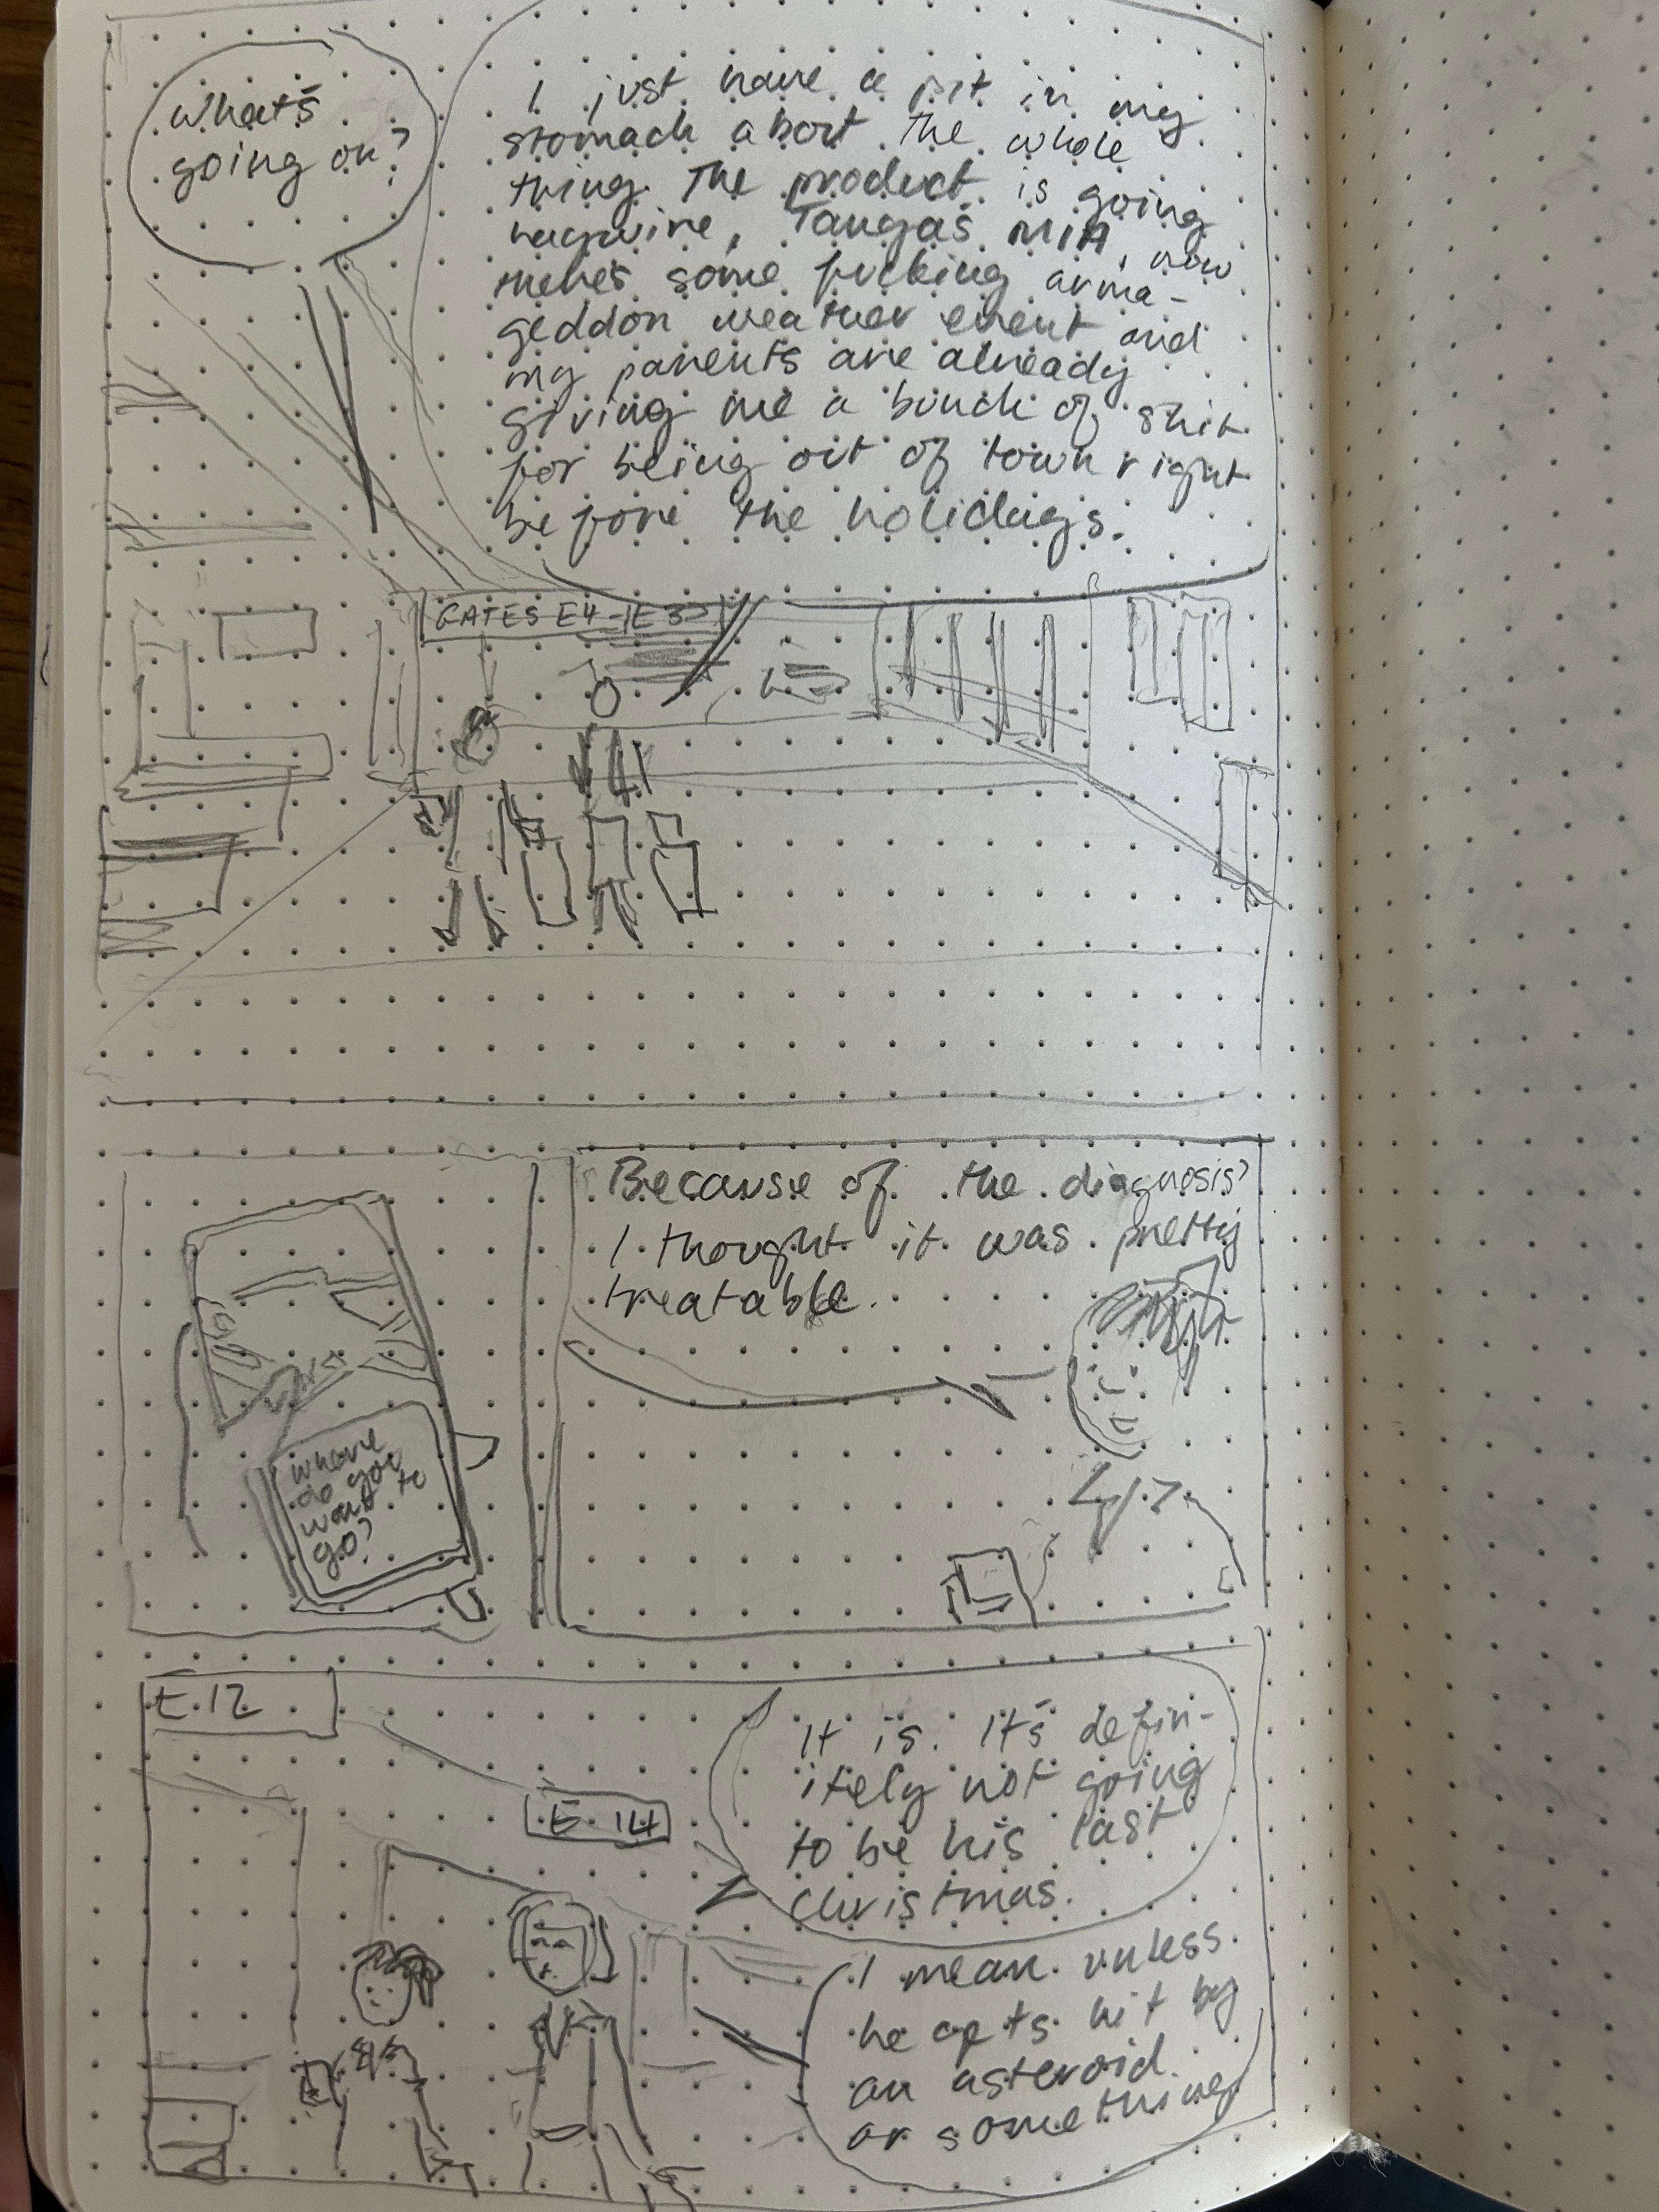 what's
going on?
I just have a pit in my
stomach about the whole
thing. The product is going
haywire, Tanga's MIA, now
there's some fucking arma-
geddon weather event and
my parents are already
giving me a bunch of shit
for being out of town right
before the holidays.
GATES E4-E32
Because of the diagnosis?
I thought it was pretty
treatable.
where
do you
want to
go?
E 12
E 14
It is. It's defin-
itely not going
to be his last
christmas.
I mean unless
he gets hit by
an asteroid
or something